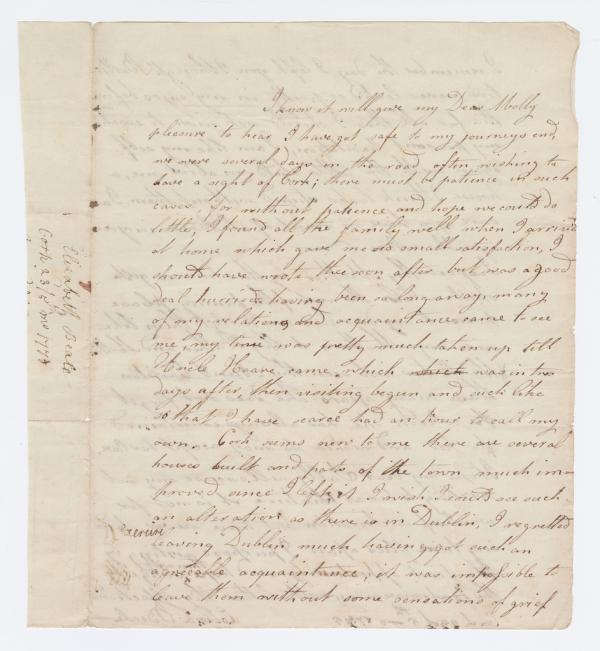 I know it will give my Dear Molly
pleasure to hear I have got safe to my journeys end,
we were several days in the road often wishing to
have a sight of Cork; there must be patience in such
cases for without patience and hope we could do
little, I found all the family well when I arrived
at home which gave me no small satisfaction, I
should have wrote thee soon after but was a good
deal hurried having been so long away, many
of my relations and acquaintance came to see
me, my time was pretty much taken up till
Uncle Hoare came which which was in two
days after, then visiting begun and such like
so that I have scarce had an hour to call my
own. Cork seems new to me there are several
houses built and parts of the town much im=
proved since I left it I wish I could see such
an alteration as there is in Dublin, I regretted
leaving Dublin much having got such an
agreeable acquaintance, it was impossible to
leave them without some sensations of grief
exercise
Elizabeth Beale
Cork 23/ mo 1774